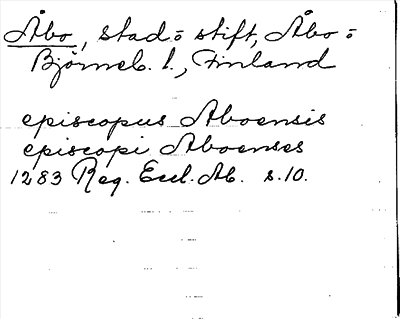 Åbo, stad = stift, Åbo =
Björneb. l., Finland
episcopus Aboensis
episcopi Aboenses
1283 Reg. Eccl. Ab. s. 10.